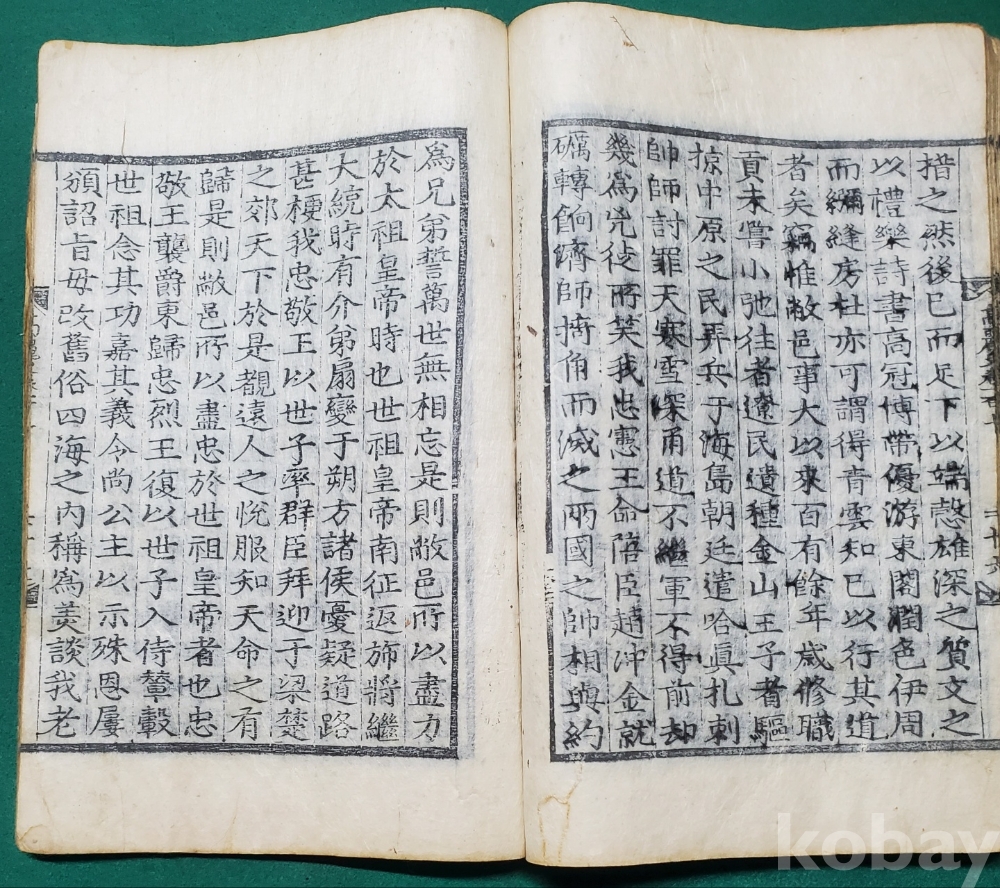 措之然後已而足下以端慤雄深之質文之
以禮樂詩書高冠博帶優游東閣潤色伊周
而繃縫房杜亦可謂得青雲知已以行其道
者矣竊惟敝邑事大以來百有餘年歲修職
貢未嘗小弛往者遼民遺種金山王子者驅
掠中原之民弄兵于海島朝廷遣哈眞扎剌
帥師討罪天寒雪深甬道不繼軍不得前却
幾爲兇徒所笑我忠憲王命陪臣趙沖金就
礪轉餉濟師掎角而滅之兩國之帥相與約
爲兄弟誓萬世無相忘是則敝邑所以盡力
於太祖皇帝時也世祖皇帝南征返旆將繼
大統時有介弟扇變于朔方諸侯憂疑道路
甚梗我忠敬王以世子率群臣拜迎于梁楚
之郊天下於是覩遠人之悅服知天命之有
歸是則敝邑所以盡忠於世祖皇帝者也忠
敬王襲爵東歸忠烈王復以世子入侍輦轂
世祖念其功嘉其義令尚公主以示殊恩屢
頒詔旨毋改舊俗四海之内稱爲美談我老
kobay